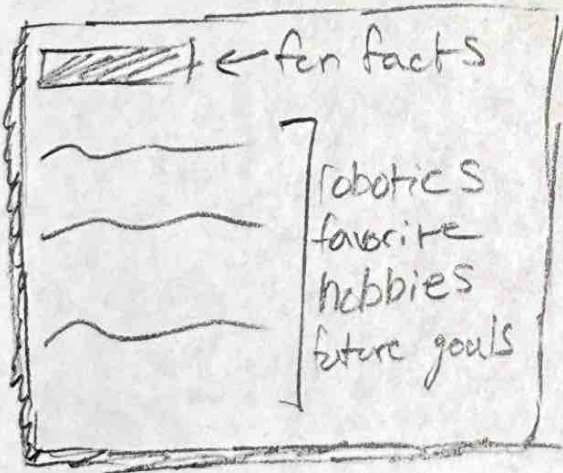 ← fun facts
robotics
favorite
hobbies
future goals